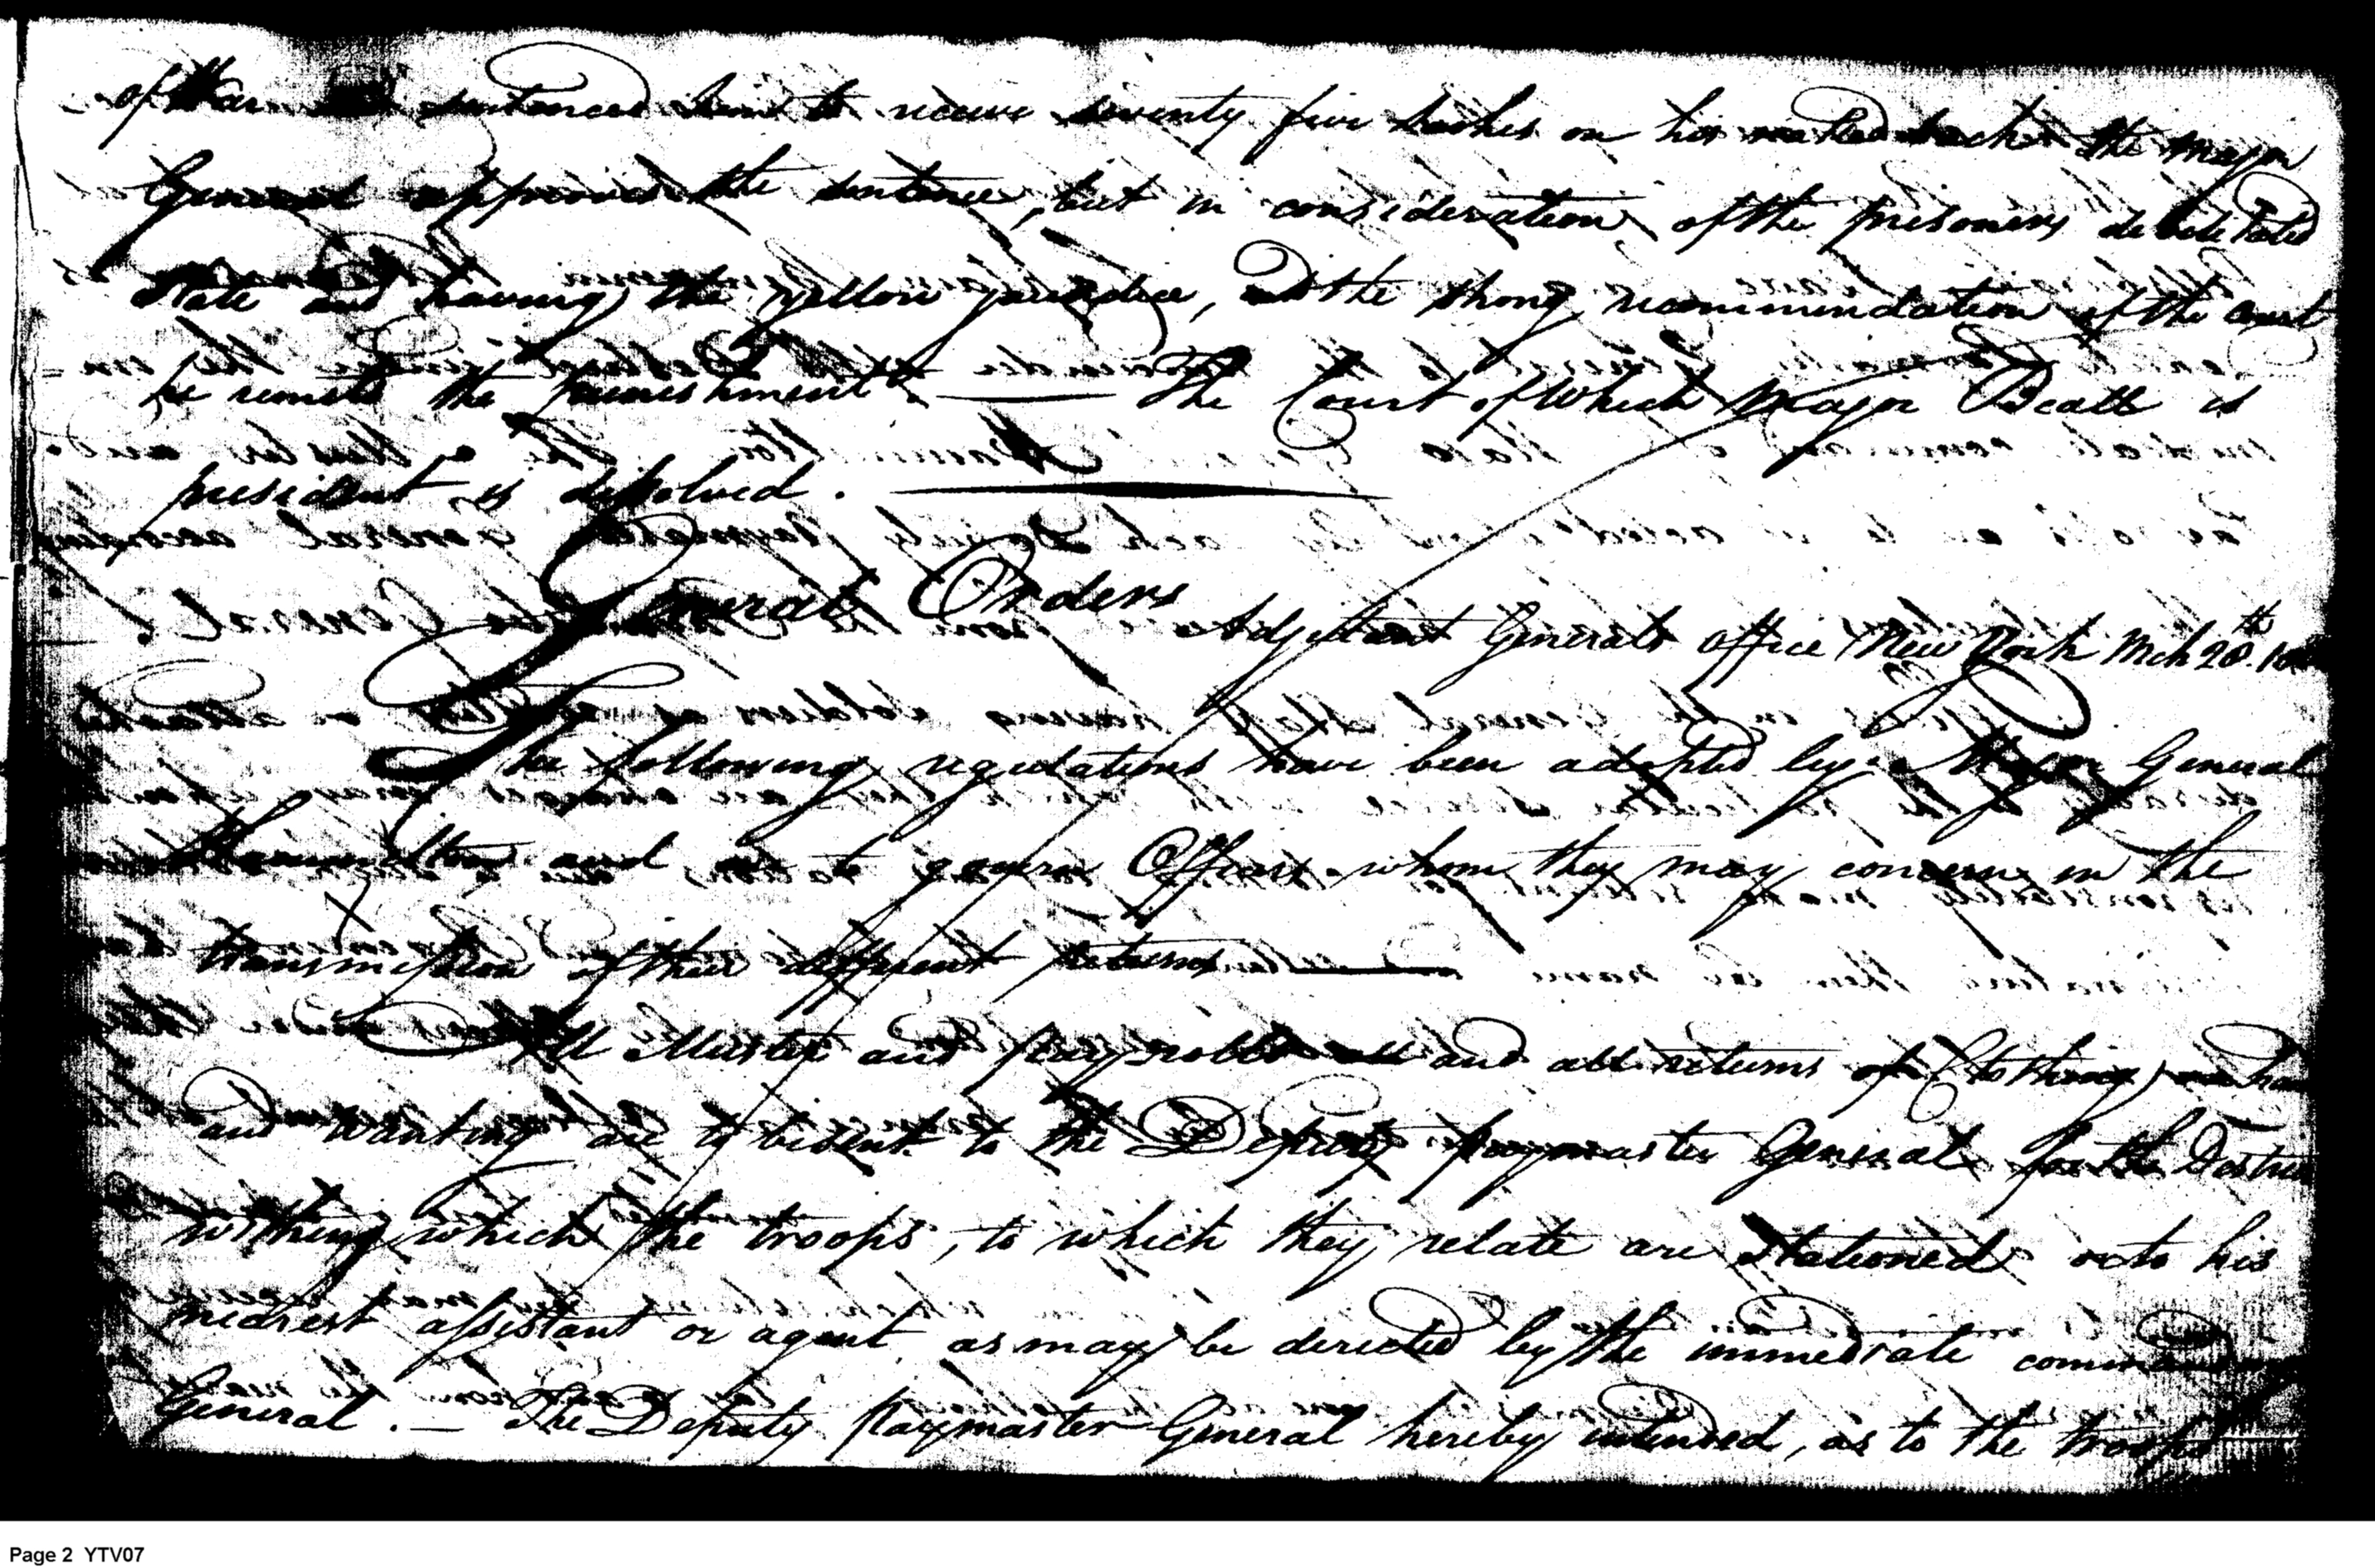 of War sentenced him to receive seventy five lashes on his naked back the Major
General approves the sentence, but in consideration of the prisoners debilitated
state and having the yellow jaundice, and the strong recommendation of the court
he remits the punishment — The Court of which Major Beall is
president is dissolved.
General Orders
Adjutant Generals office New York Mch 20th
The following regulations have been adopted by Major General
Hamilton and are to govern Officers whom they may concern in the
transmission of their different returns —
All Muster and pay rolls and all returns of Clothing on hand
and wanting are to be sent to the Deputy paymaster General for the District
withing which the troops, to which they relate are stationed or to his
nearest assistant or agent as may be derected by the immediate command
General. — The Deputy Paymaster General hereby intended, as to the troops
Page 2 YTV07